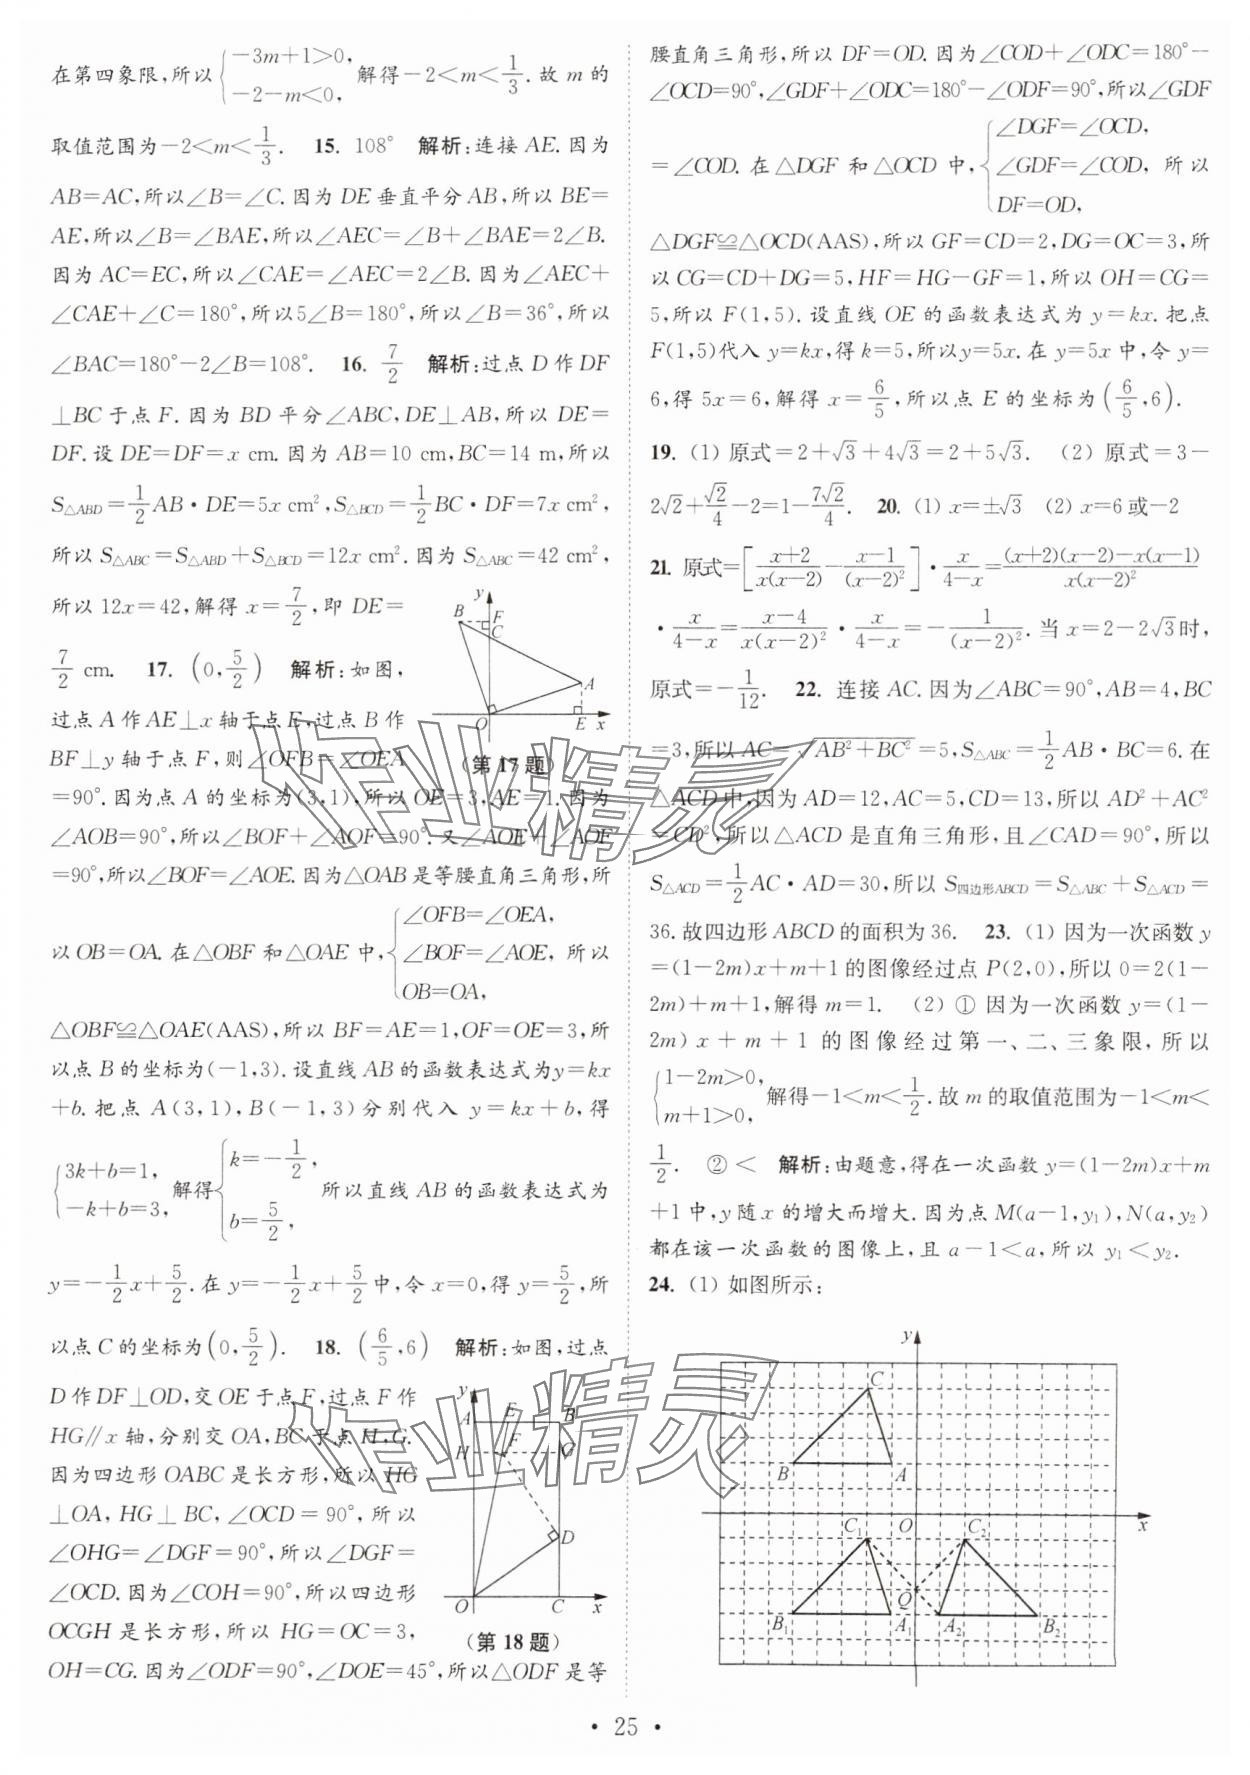 在第四象限,所以{−3m+1>0, −2−m<0, 解得−2<m<1/3.故 m 的
取值范围为−2<m<1/3. 15. 108° 解析:连接 AE.因为
AB=AC,所以∠B=∠C.因为 DE 垂直平分 AB,所以 BE=
AE,所以∠B=∠BAE,所以∠AEC=∠B+∠BAE=2∠B.
因为 AC=EC,所以∠CAE=∠AEC=2∠B.因为∠AEC+
∠CAE+∠C=180°,所以5∠B=180°,所以∠B=36°,所以
∠BAC=180°−2∠B=108°. 16. 7/2 解析:过点 D 作 DF
⊥BC 于点 F.因为 BD 平分∠ABC,DE⊥AB,所以 DE=
DF.设 DE=DF=x cm.因为 AB=10 cm,BC=14 m,所以
S△ABD=1/2 AB·DE=5x cm²,S△BCD=1/2 BC·DF=7x cm²,
所以 S△ABC=S△ABD+S△BCD=12x cm².因为 S△ABC=42 cm²,
所以 12x=42,解得 x=7/2,即 DE=
7/2 cm. 17. (0,5/2) 解析:如图,
过点 A 作 AE⊥x 轴于点 E,过点 B 作
BF⊥y 轴于点 F,则∠OFB=∠OEA
y B F C A O E x
(第 17 题)
=90°.因为点 A 的坐标为(3,1),所以 OE=3,AE=1.因为
∠AOB=90°,所以∠BOF+∠AOF=90°.又∠AOE+∠AOF
=90°,所以∠BOF=∠AOE.因为△OAB 是等腰直角三角形,所
以 OB=OA.在△OBF 和△OAE 中,{∠OFB=∠OEA, ∠BOF=∠AOE, OB=OA, 所以
△OBF≌△OAE(AAS),所以 BF=AE=1,OF=OE=3,所
以点 B 的坐标为(−1,3).设直线 AB 的函数表达式为y=kx
+b.把点 A(3,1),B(−1,3)分别代入 y=kx+b,得
{3k+b=1, −k+b=3, 解得{k=−1/2, b=5/2, 所以直线 AB 的函数表达式为
y=−1/2 x+5/2.在 y=−1/2 x+5/2中,令 x=0,得 y=5/2,所
以点 C 的坐标为(0,5/2). 18. (6/5,6) 解析:如图,过点
D 作 DF⊥OD,交 OE 于点 F,过点 F 作
HG∥x 轴,分别交 OA,BC 于点 H,G.
因为四边形 OABC 是长方形,所以 HG
⊥OA,HG⊥BC,∠OCD=90°,所以
∠OHG=∠DGF=90°,所以∠DGF=
∠OCD.因为∠COH=90°,所以四边形
OCGH 是长方形,所以 HG=OC=3,
y A E B H F G D O C x
(第 18 题)
OH=CG.因为∠ODF=90°,∠DOE=45°,所以△ODF 是等
腰直角三角形,所以 DF=OD.因为∠COD+∠ODC=180°−
∠OCD=90°,∠GDF+∠ODC=180°−∠ODF=90°,所以∠GDF
=∠COD.在△DGF 和△OCD 中,{∠DGF=∠OCD, ∠GDF=∠COD, DF=OD, 所以
△DGF≌△OCD(AAS),所以 GF=CD=2,DG=OC=3,所
以 CG=CD+DG=5,HF=HG−GF=1,所以 OH=CG=
5,所以 F(1,5).设直线 OE 的函数表达式为 y=kx.把点
F(1,5)代入 y=kx,得 k=5,所以y=5x.在 y=5x 中,令 y=
6,得 5x=6,解得 x=6/5,所以点 E 的坐标为(6/5,6).
19. (1) 原式=2+√3+4√3=2+5√3. (2) 原式=3−
2√2+√2/4−2=1−7√2/4. 20. (1) x=±√3 (2) x=6或−2
21. 原式=[(x+2)/x(x−2)−(x−1)/(x−2)²]·x/(4−x)=((x+2)(x−2)−x(x−1))/x(x−2)²
·x/(4−x)=(x−4)/x(x−2)²·x/(4−x)=−1/(x−2)².当 x=2−2√3时,
原式=−1/12. 22. 连接 AC.因为∠ABC=90°,AB=4,BC
=3,所以 AC=√(AB²+BC²)=5,S△ABC=1/2 AB·BC=6.在
△ACD 中,因为 AD=12,AC=5,CD=13,所以 AD²+AC²
=CD²,所以△ACD 是直角三角形,且∠CAD=90°,所以
S△ACD=1/2 AC·AD=30,所以 S四边形ABCD=S△ABC+S△ACD=
36.故四边形 ABCD 的面积为 36. 23. (1) 因为一次函数 y
=(1−2m)x+m+1 的图像经过点 P(2,0),所以 0=2(1−
2m)+m+1,解得 m=1. (2) ① 因为一次函数 y=(1−
2m)x+m+1 的图像经过第一、二、三象限,所以
{1−2m>0, m+1>0, 解得−1<m<1/2.故 m 的取值范围为−1<m<
1/2. ② < 解析:由题意,得在一次函数 y=(1−2m)x+m
+1 中,y 随 x 的增大而增大.因为点 M(a−1,y₁),N(a,y₂)
都在该一次函数的图像上,且 a−1<a,所以 y₁<y₂.
24. (1) 如图所示:
y C B A C₁ O C₂ x Q B₁ A₁ A₂ B₂
作业精灵
作业精灵
· 25 ·